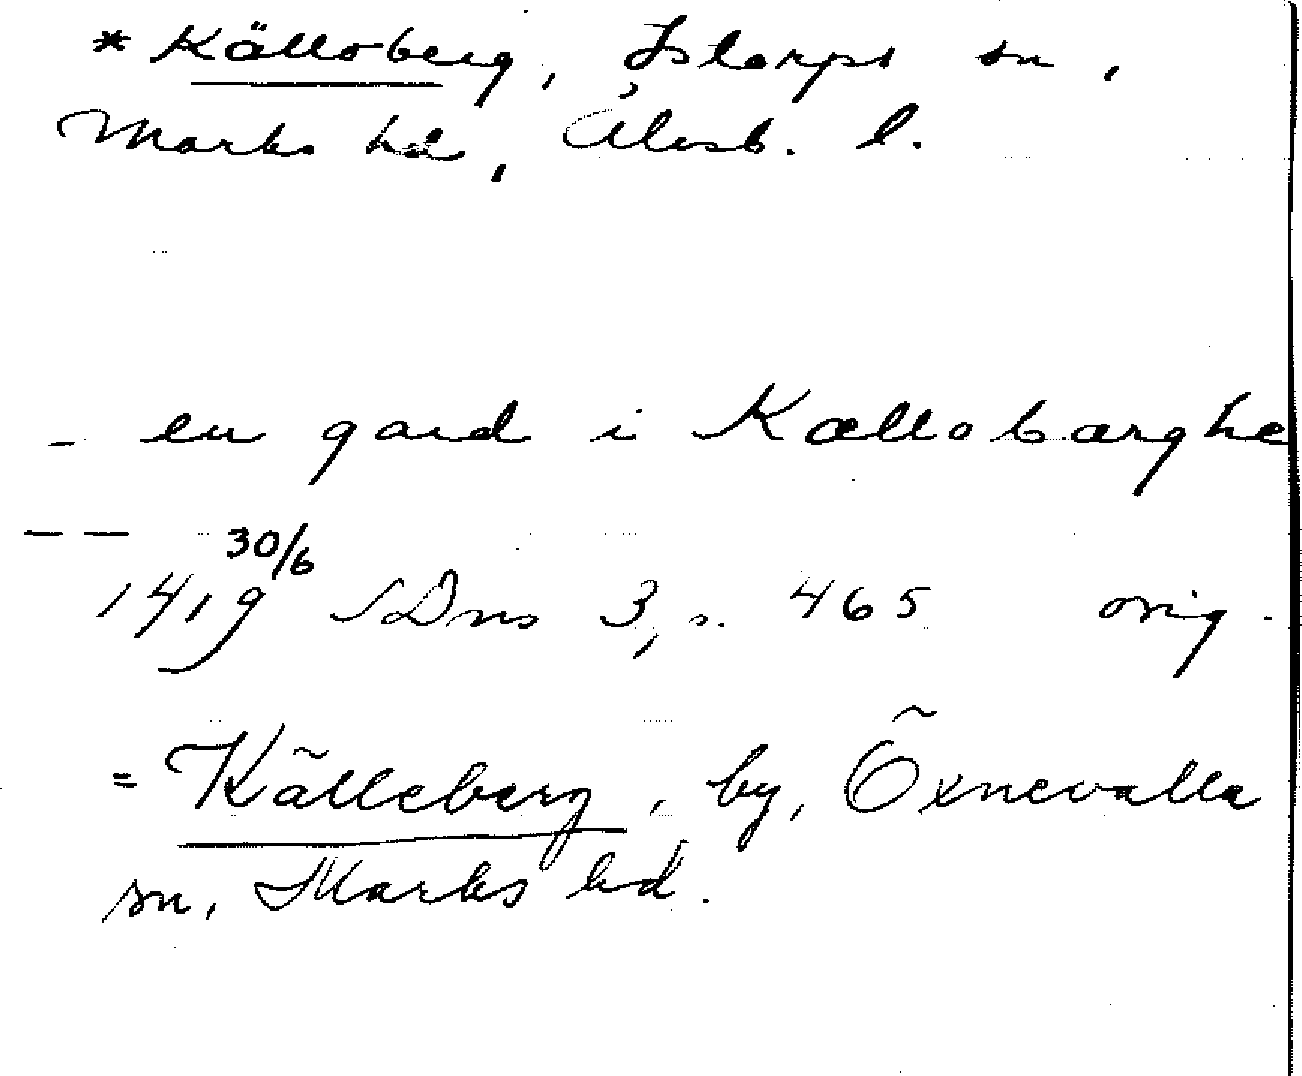 * Källoberg, Istorps sn,
Marks hd, Älvsb. l.
- en gard i Kællobærghe
— — 30/6
1419 SDns 3, s. 465 orig.
= Källeberg, by, Öxnevalla
sn, Marks hd.